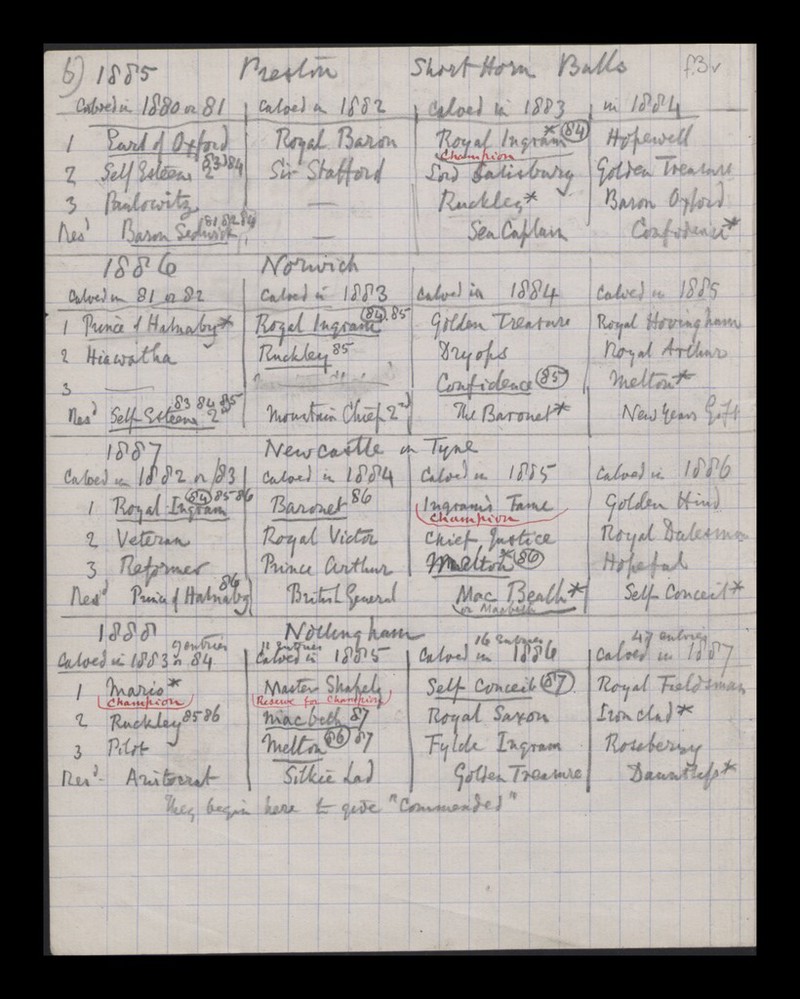 6) 1885 Preston Short Horn Bulls f.3v
Calved in 1880 or 81 Calved in 1882 Calved in 1883 in 1884
1 Earl of Oxford Royal Baron Royal Ingram* (84) Hopewell
Champion
2 Self Esteem 2d 83 84 Sir Stafford Lord Salisbury Golden Treasure
3 Paulowitz — Ruckley* Baron Oxford
Resd Baron Sedwick 81 82 84 — Sea Captain Confidence*
1886 Norwich
Calved in 81 or 82 Calved in 1883 Calved in 1884 Calved in 1885
1 Prince of Halnaby* Royal Ingram (84).85 Golden Treasure Royal Hovingham
2 Hiawatha Ruckley 85 Dryops Royal Arthur
3 — Confidence (85) Melton*
Resd Self Esteem 2d 83 84 85 Mountain Chief 2d The Baronet* New Years Gift
1887 Newcastle on Tyne
Calved in 1882 or /83 Calved in 1884 Calved in 1885 Calved in 1886
1 Royal Ingram (84) 85 86 Baronet 86 Ingram's Fame Golden Hind
Champion
2 Veteran Royal Victor Chief Justice Royal Dalesman
3 Reformer Prince Arthur Melton* (86) Hopeful
Resd Prince of Halnaby 86 British General Mac Beath* Self Conceit*
or Macbeth
1888 Nottingham
9 entries 11 entries 16 entries 47 entries
Calved in 1883 or 84 Calved in 1885 Calved in 1886 Calved in 1887
1 Mario* Master Shapely Self Conceit (87) Royal Fieldsman
Champion Reserve for Champion
2 Ruckley 85 86 Macbeth 87 Royal Saxon Ironclad*
3 Pilot Melton (86) 87 Fylde Ingram Rosebery
Resd Aristocrat Silkie Lad Golden Treasure Dauntless*
They begin here to give "Commended"